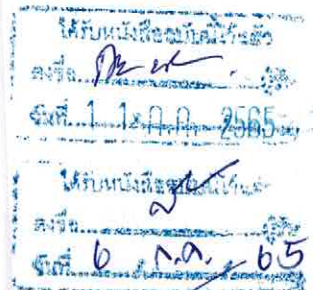 ได้รับหนังสือฉบับนี้แล้ว
ลงชื่อ......ผู้รับ
วันที่ 1 1 ก.ค. 2565
ได้รับหนังสือฉบับนี้แล้ว
ลงชื่อ......ผู้รับ
วันที่ 6 ก.ค. 65